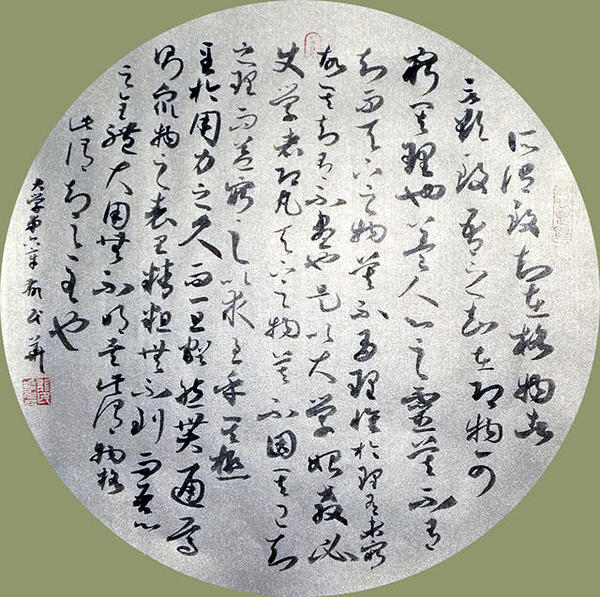 所謂致知在格物者
言欲致吾之知在即物而
窮其理也蓋人心之靈莫不有
知而天下之物莫不有理惟於理有未窮
故其知有不盡也是以大學始教必
使學者即凡天下之物莫不因其已知
之理而益窮之以求至乎其極
至於用力之久而一旦豁然貫通焉
則眾物之表里精粗無不到而吾心
之全體大用無不明矣此謂物格
此謂知之至也
大学第六章